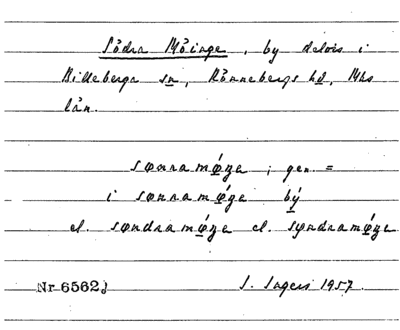 Södra Möinge, by delvis i
Billeberga sn, Rönnebergs hd, Mhs
län.
sønnamǿge; gen. =
i sønnamǿge by
el. søndramǿge el. søndramǿge
Nr 6562
I. Ingers 1957.